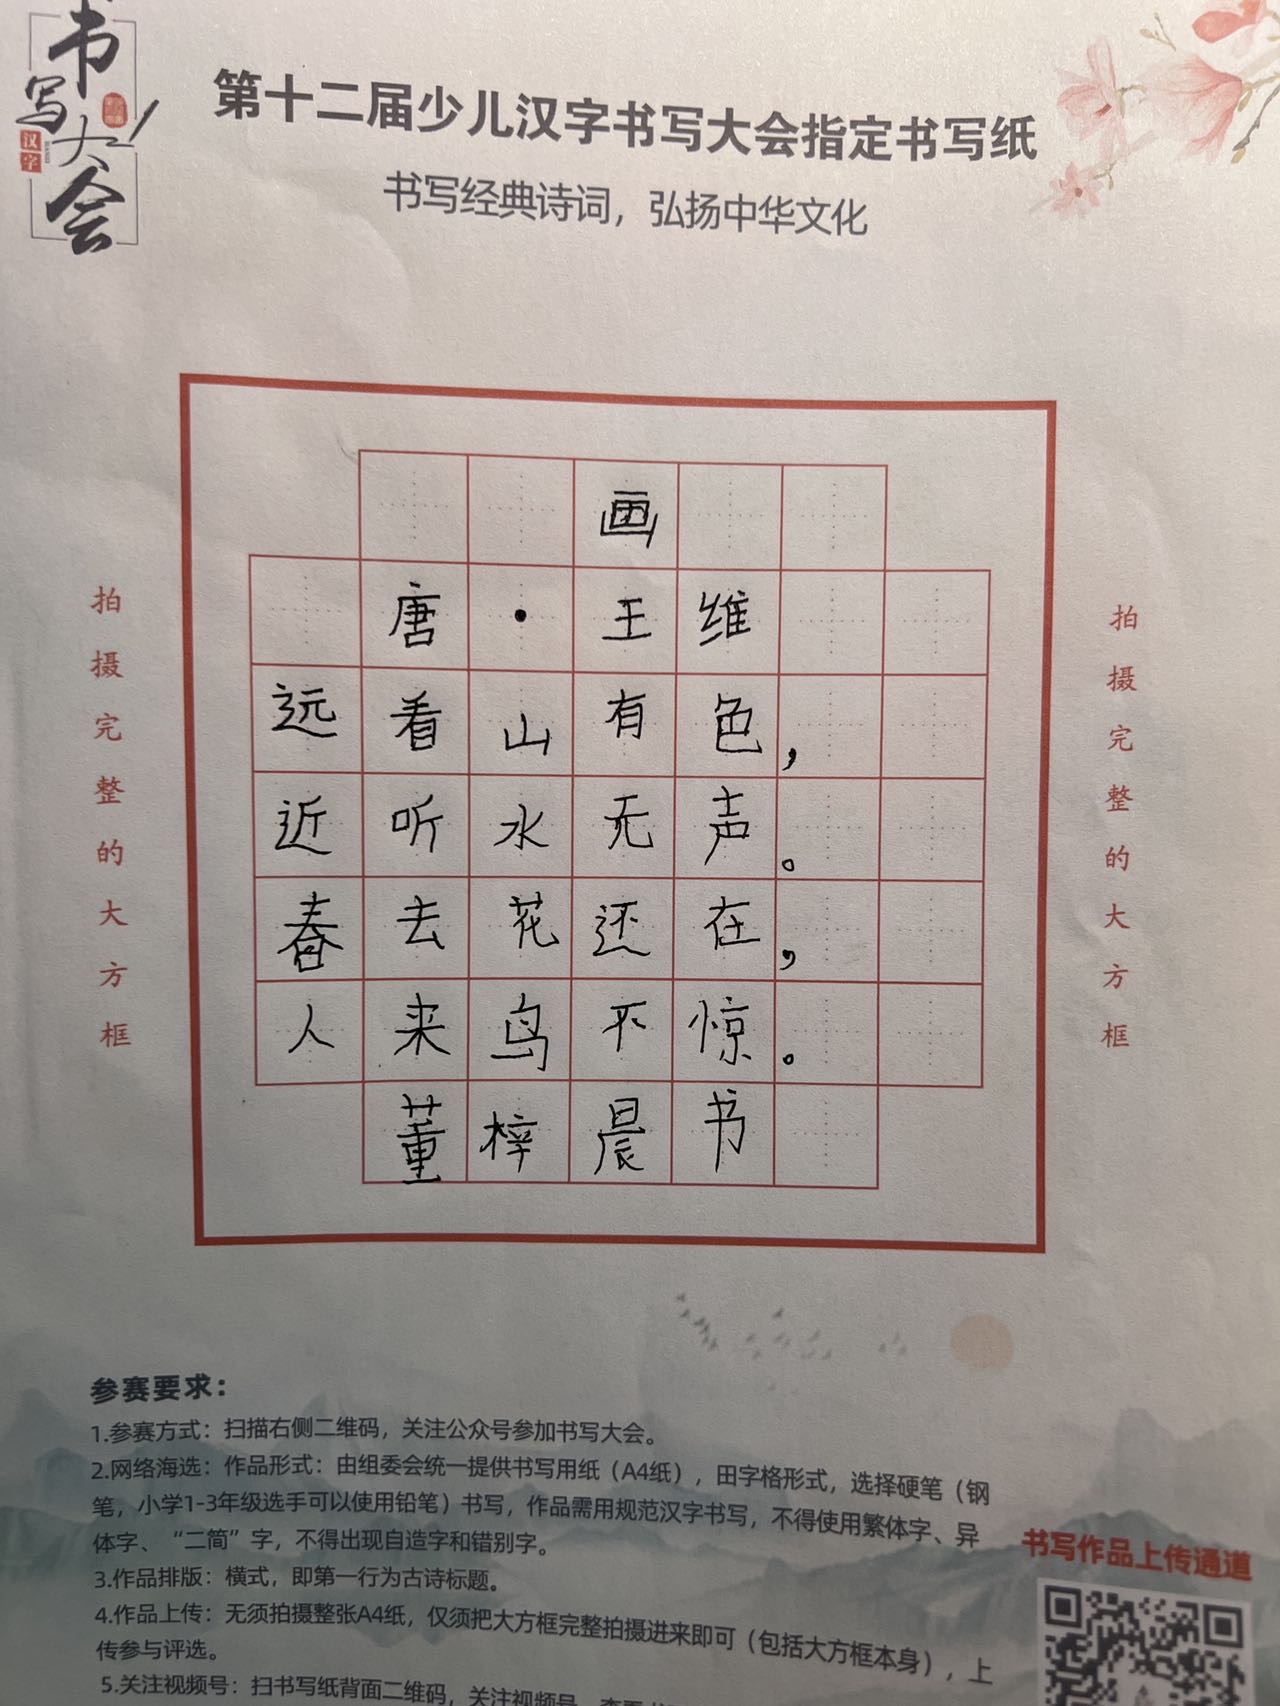 书写大会
汉字
第十二届少儿汉字书写大会指定书写纸
书写经典诗词，弘扬中华文化
拍摄完整的大方框
画
唐·王维
远看山有色，
近听水无声。
春去花还在，
人来鸟不惊。
董梓晨书
拍摄完整的大方框
参赛要求：
1.参赛方式：扫描右侧二维码，关注公众号参加书写大会。
2.网络海选：作品形式：由组委会统一提供书写用纸（A4纸），田字格形式，选择硬笔（钢
笔，小学1-3年级选手可以使用铅笔）书写，作品需用规范汉字书写，不得使用繁体字、异
体字、“二简”字，不得出现自造字和错别字。
3.作品排版：横式，即第一行为古诗标题。
4.作品上传：无须拍摄整张A4纸，仅须把大方框完整拍摄进来即可（包括大方框本身），上
传参与评选。
5.关注视频号：扫书写纸背面二维码，关注视频号
书写作品上传通道